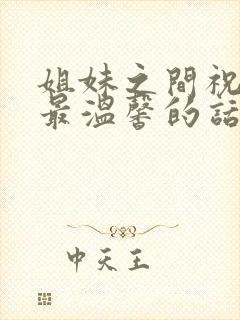 姐妹之間祝
最溫馨的話
中天王